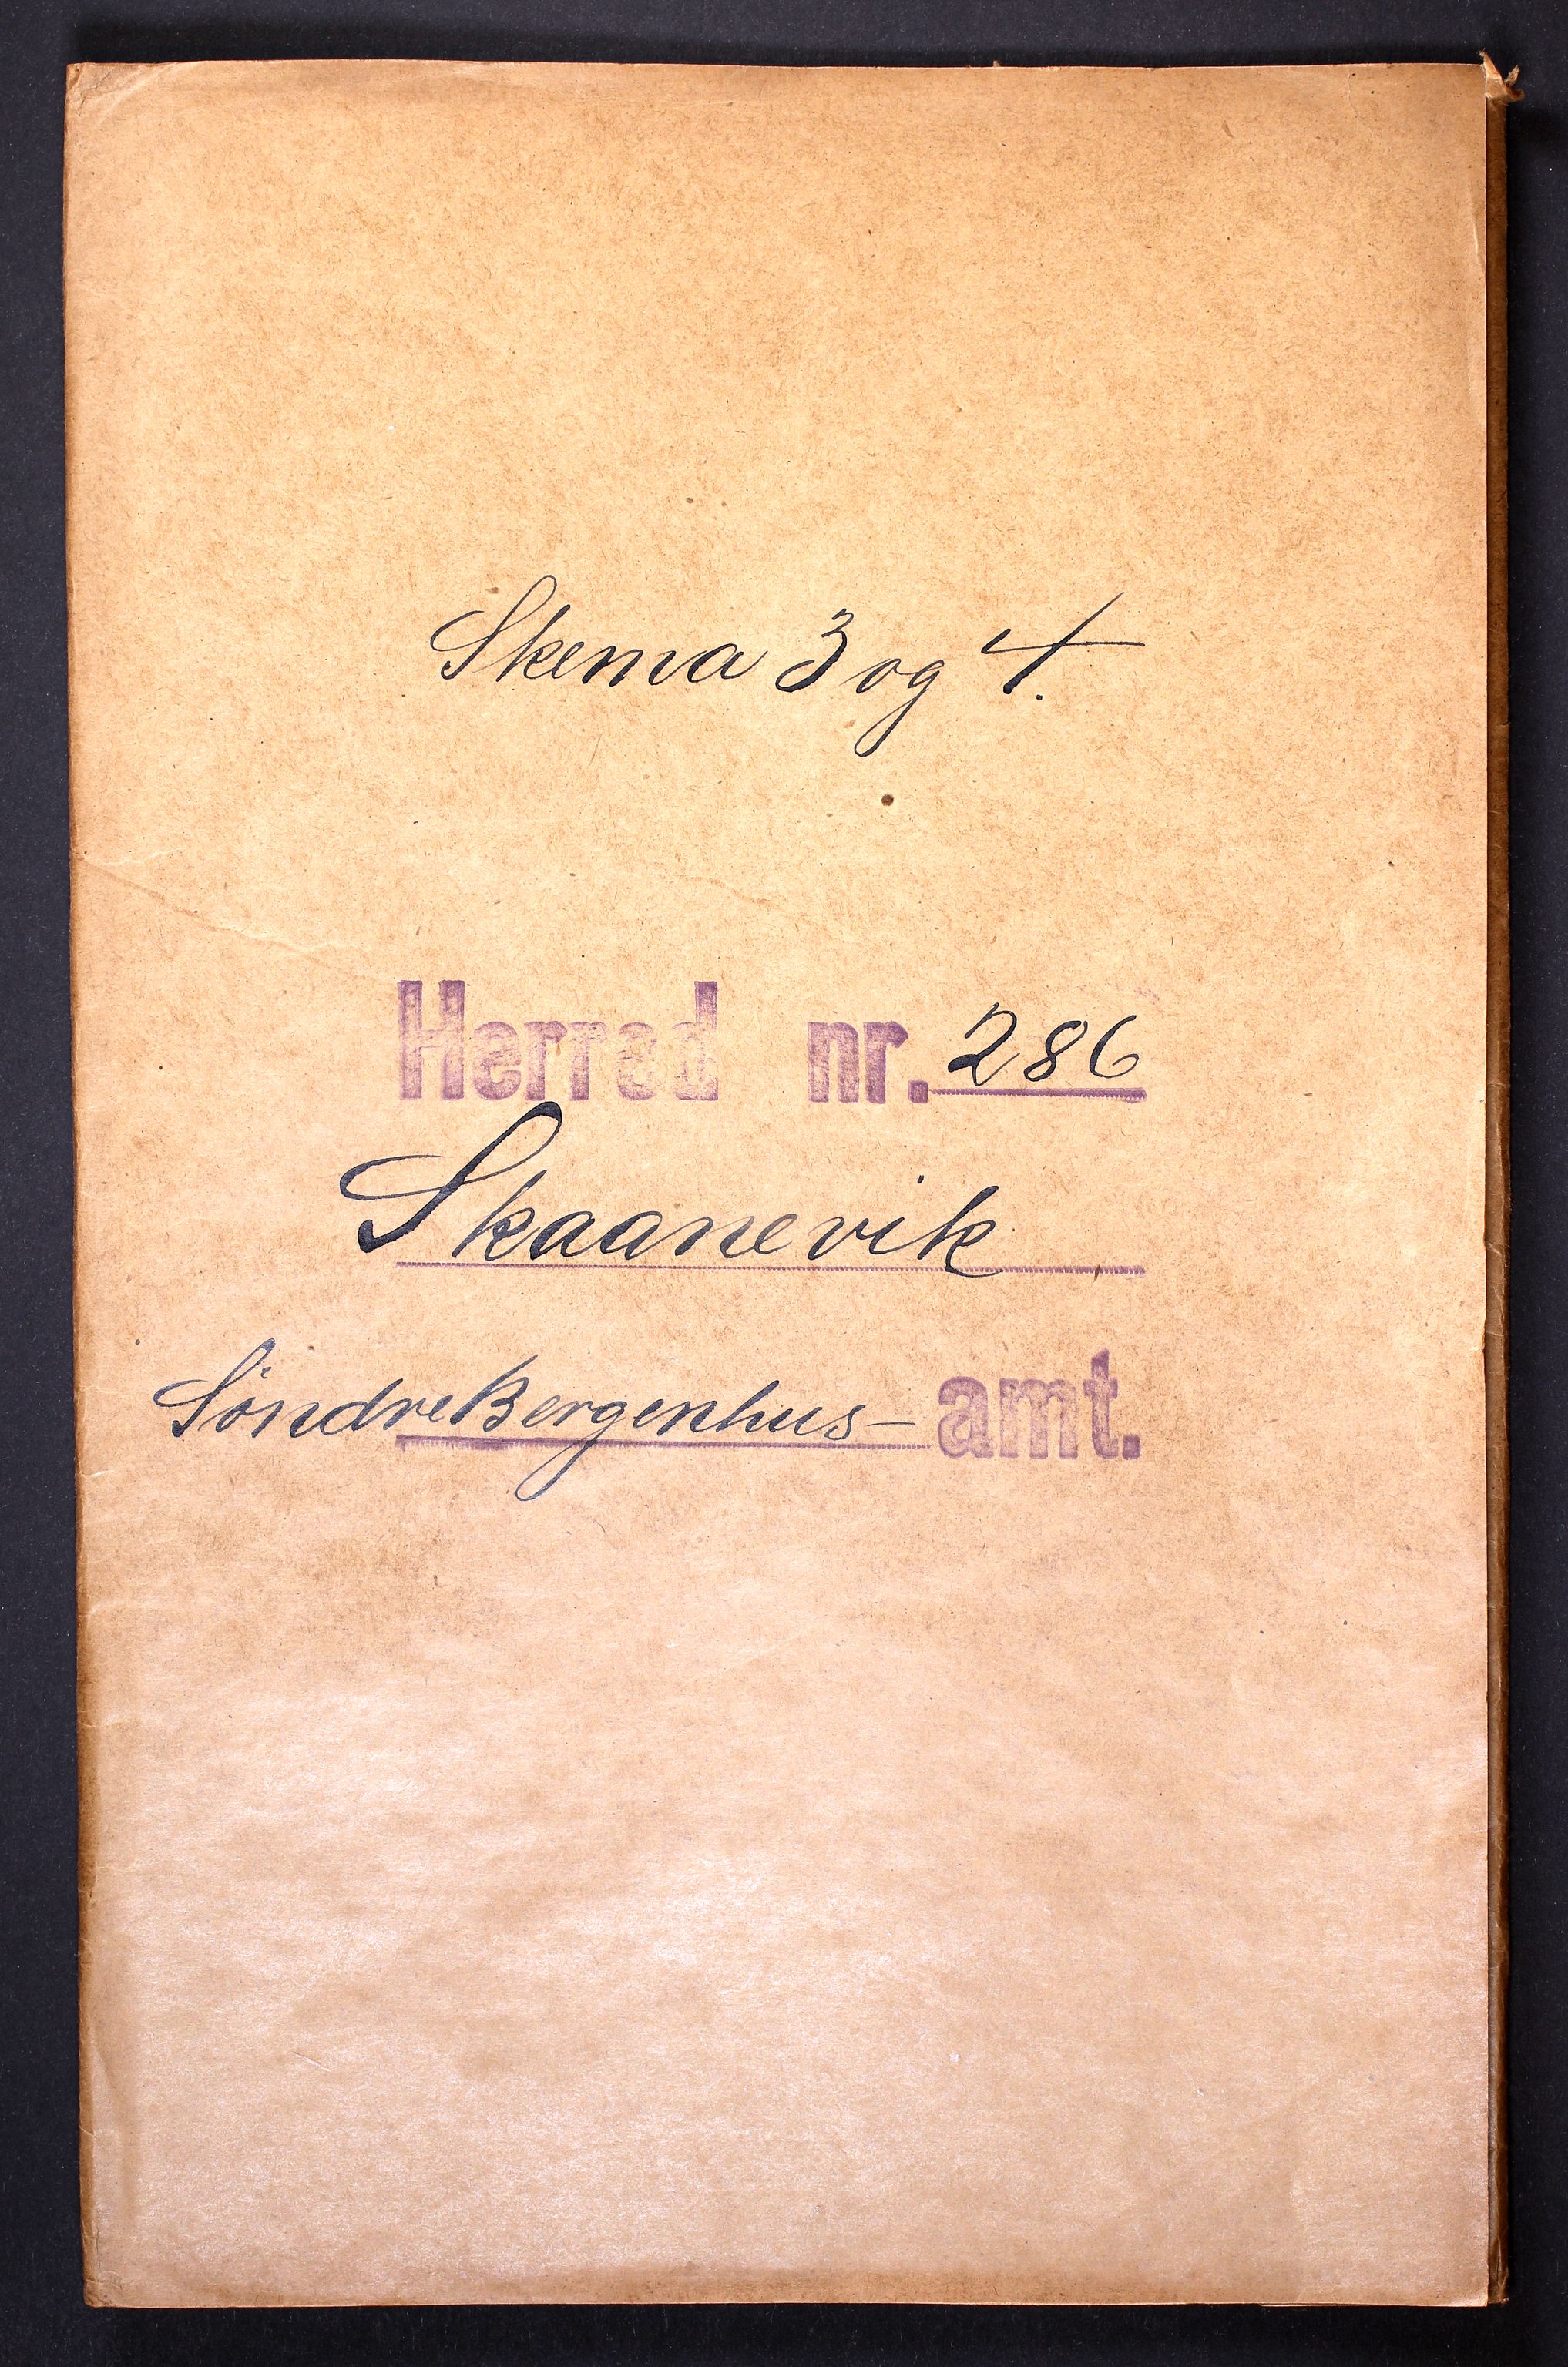 Skema 3 og 4.
Herred nr. 286
Skaanevik
Söndre Bergenhus- amt.